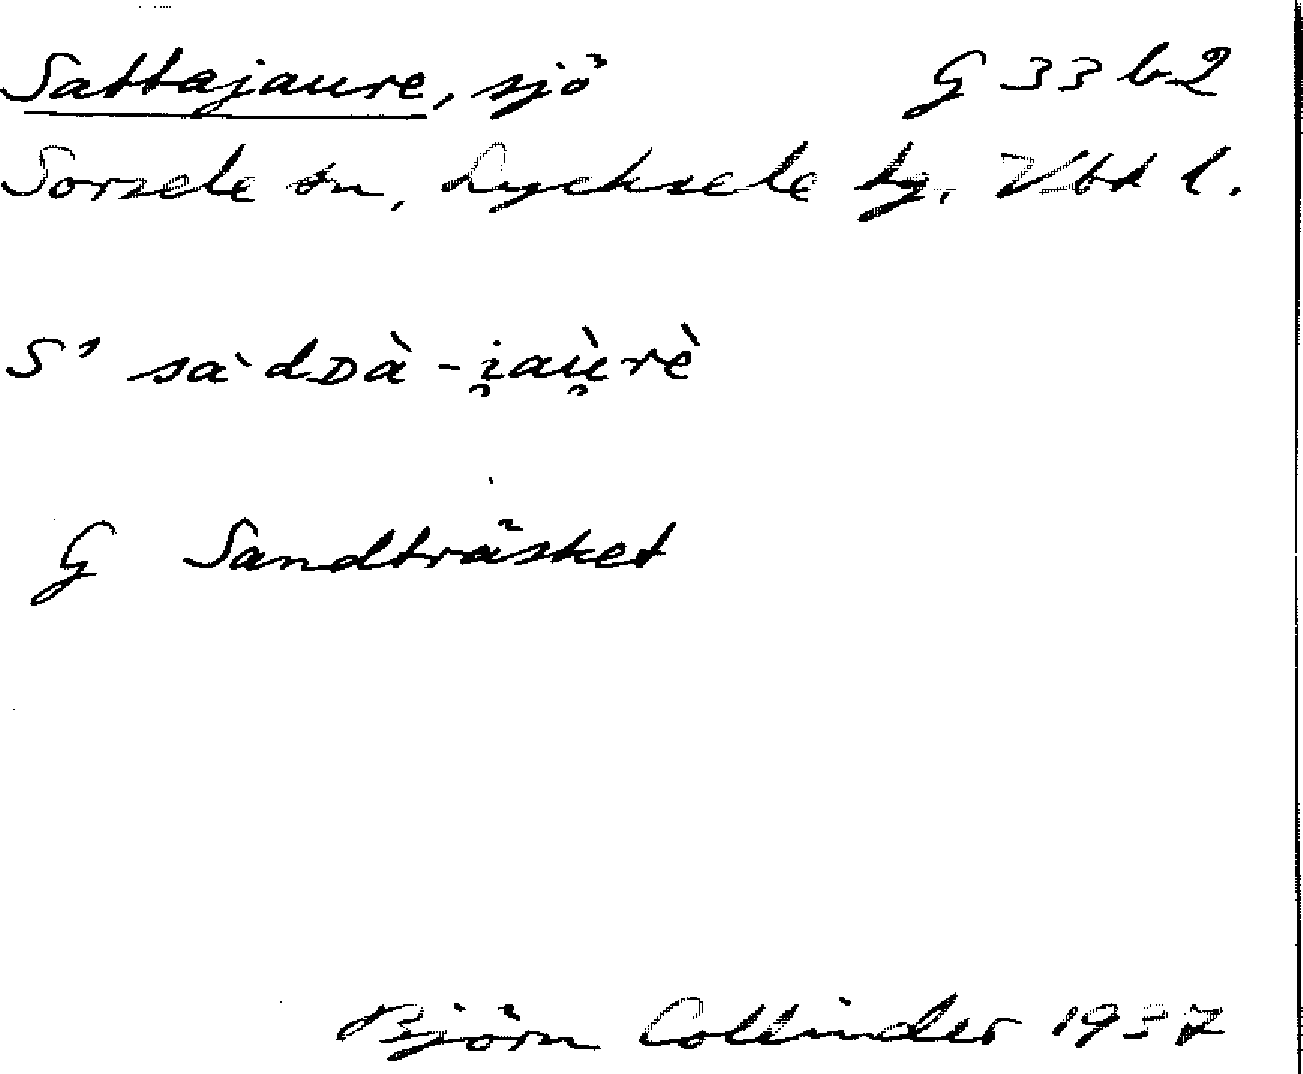 Sattajaure, sjö G 33 b2
Sorsele sn, Lycksele tg. Vbn l.
S' sàdDà-i̯aù̯rè
G Sandträsket
Björn Collinder 1937